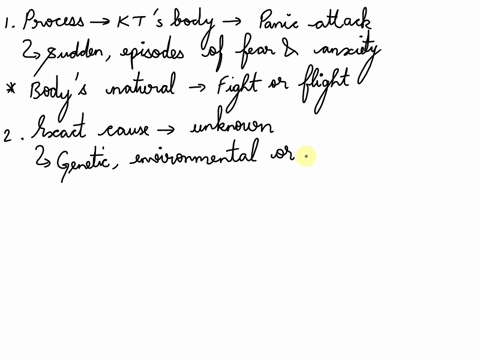 1. Process → KT's body → Panic attack
↳ Sudden, episodes of fear & anxiety
* Body's natural → Fight or flight
2. Exact cause → unknown
↳ Genetic, environmental or